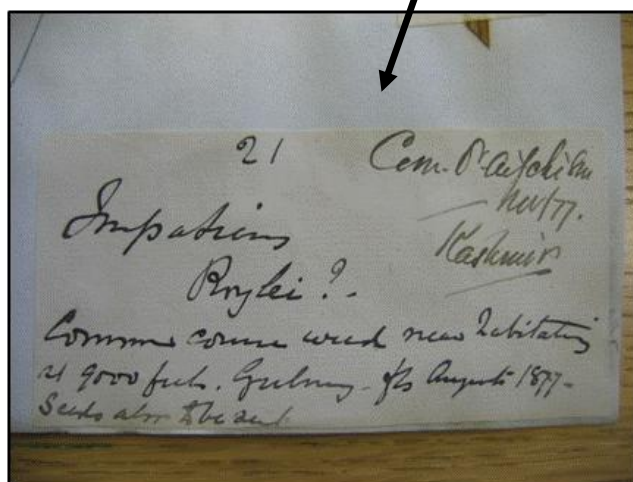 21
Com. Dr Aitchison
Nov/77.
Kashmir
Impatiens
Roylei ?-
Common coarse weed near habitations
at 9000 feet. Gulmurg - August 1877-
Seeds also to be sent